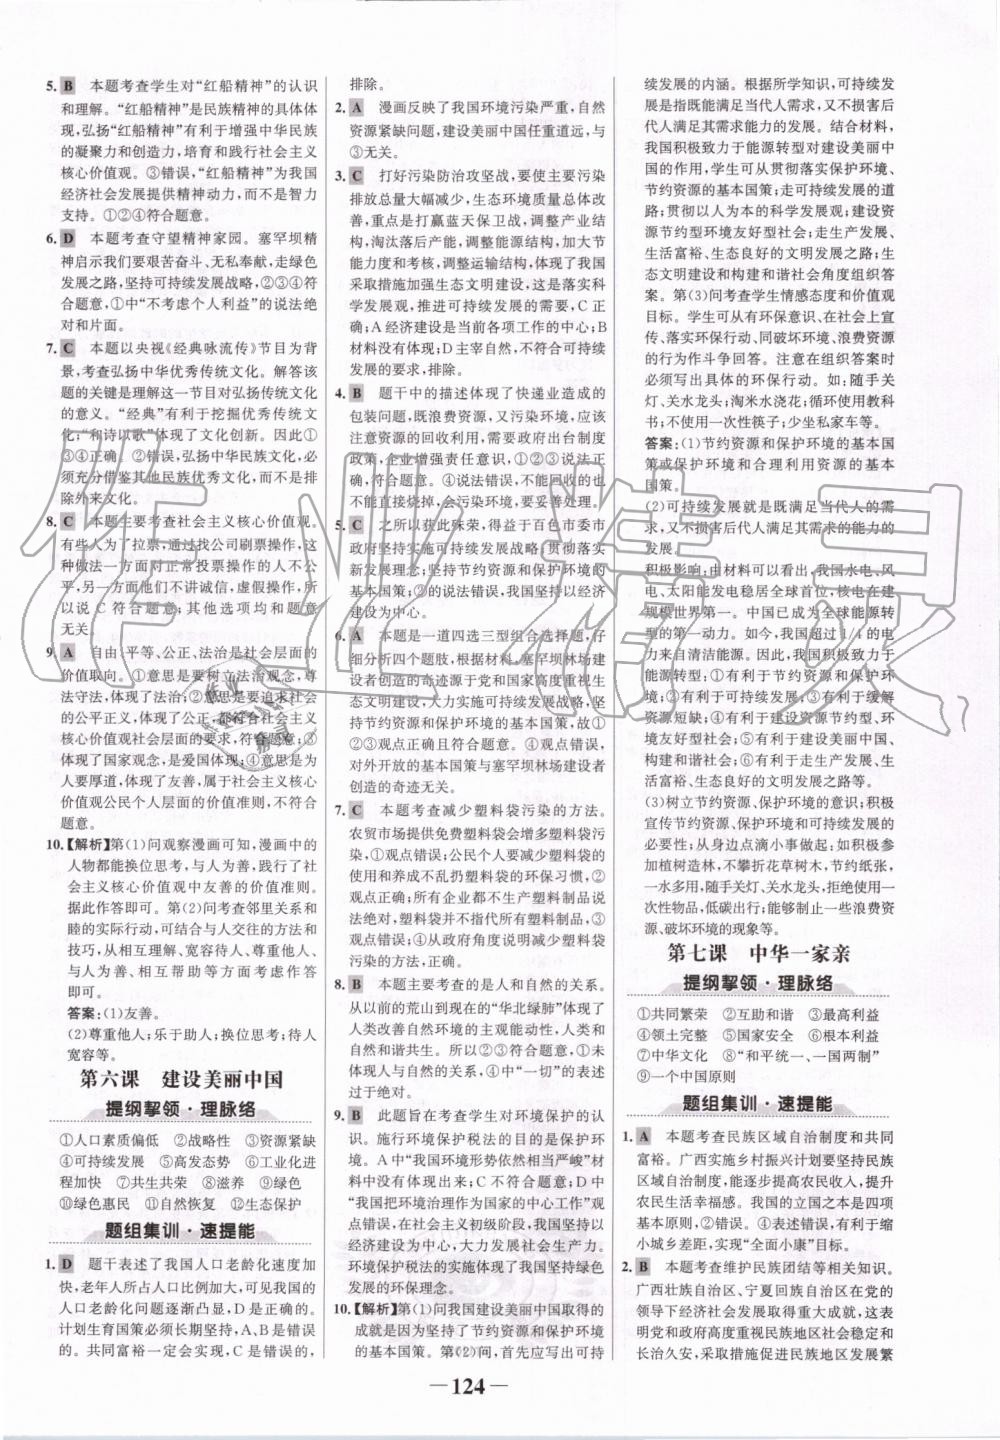 5. B 本题考查学生对“红船精神”的认识
和理解。“红船精神”是民族精神的具体体
现,弘扬“红船精神”有利于增强中华民族
的凝聚力和创造力,培育和践行社会主义
核心价值观。③错误,“红船精神”为我国
经济社会发展提供精神动力,而不是智力
支持。①②④符合题意。
6. D 本题考查守望精神家园。塞罕坝精
神启示我们要艰苦奋斗、无私奉献,走绿色
发展之路,坚持可持续发展战略,②③④符
合题意,①中“不考虑个人利益”的说法绝
对和片面。
7. C 本题以央视《经典咏流传》节目为背
景,考查弘扬中华优秀传统文化。解答该
题的关键是理解这一节目对弘扬传统文化
的意义。“经典”有利于挖掘优秀传统文
化;“和诗以歌”体现了文化创新。因此①
③④正确。②错误,弘扬中华民族文化,必
须充分借鉴其他民族优秀文化,而不是排
除外来文化。
8. C 本题主要考查社会主义核心价值观。
有些人为了拉票,通过找公司刷票操作,这
种做法一方面对正常投票操作的人不公
平,另一方面他们不讲诚信,虚假操作,所
以说 C 符合题意;其他选项均和题意
无关。
9. A 自由、平等、公正、法治是社会层面的
价值取向。①意思是要树立法治观念,尊
法守法,体现了法治;②意思是要追求社会
的公平正义,体现了公正,都符合社会主义
核心价值观社会层面的要求,符合题意;③
体现了国家观念,是爱国体现;④意思是为
人要厚道,体现了友善,属于社会主义核心
价值观公民个人层面的价值准则,不符合
题意。
10.【解析】第(1)问观察漫画可知,漫画中的
人物都能换位思考,与人为善,践行了社
会主义核心价值观中友善的价值准则。
据此作答即可。第(2)问考查邻里关系和
睦的实际行动,可结合与人交往的方法和
技巧,从相互理解、宽容待人、尊重他人、
与人为善、相互帮助等方面组织答案
即可。
答案:(1)友善。
(2)尊重他人;乐于助人;换位思考;待人
宽容等。
第六课 建设美丽中国
提纲挈领·理脉络
①人口素质偏低 ②战略性 ③资源紧缺
④可持续发展 ⑤高发态势 ⑥工业化进
程 ⑦共生共荣 ⑧滋养 ⑨绿色
⑩绿色惠民 ⑪自然恢复 ⑫生态保护
题组集训·速提能
1. D 题干表述了我国人口老龄化速度加
快,老年人所占人口比例加大,可见我国的
人口老龄化问题逐渐凸显,D 是正确的。
计划生育国策必须长期坚持,A、B 是错误
的。共同富裕一定会实现,C 是错误的,
排除。
2. A 漫画反映了我国环境污染严重,自然
资源紧缺问题,建设美丽中国任重道远,与
③无关。
3. C 打好污染防治攻坚战,要使主要污染
排放总量大幅减少,生态环境质量总体改
善,重点是打赢蓝天保卫战,调整产业结
构,淘汰落后产能,调整能源结构,加大节
能力度和考核,调整运输结构,体现了我国
采取措施加强生态文明建设,这是落实科
学发展观,推进可持续发展的需要,C 正
确;A 经济建设是当前各项工作的中心;B
材料没有体现;D 主宰自然,不符合可持续
发展的要求,排除。
4. B 题干中的描述体现了快递业造成的
包装问题,既浪费资源,又污染环境,应该
注意资源的回收利用,需要政府出台制度
政策,企业增强责任意识。①②③说法正
确,符合题意。④说法错误,不能回收的也
不能直接烧掉,会污染环境,要妥善处理。
5. C 之所以获此殊荣,得益于百色市委市
政府坚持实施可持续发展战略;贯彻落实
新发展理念;坚持节约资源和保护环境的
基本国策;②的说法错误,我国坚持以经济
建设为中心。
6. A 本题是一道四选三型组合选择题,仔
细分析四个题肢,根据材料,塞罕坝林场建
设者创造的奇迹源于党和国家高度重视生
态文明建设,大力实施可持续发展战略,坚
持节约资源和保护环境的基本国策,故①
②③观点正确且符合题意。④观点错误,
对外开放的基本国策与塞罕坝林场建设者
创造的奇迹无关。
7. C 本题考查减少塑料袋污染的方法。
农贸市场提供免费塑料袋会增多塑料污染,
①观点错误;公民个人要减少塑料袋
的使用和养成不乱扔塑料袋的环保习惯,②
观点正确;所有企业都不生产塑料制品说
法绝对,塑料袋并不指代所有塑料制品,③
观点错误;④从政府角度说明减少塑料袋
污染的方法,正确。
8. B 本题主要考查的是人和自然的关系。
从以前的荒山到现在的“华北绿肺”体现了
人类改善自然环境的主观能动性,人类和
自然和谐共生。所以②③正确;①未
体现人与自然环境的矛盾,④中“一切”的表述
过于绝对。
9. B 此题旨在考查学生对环境保护的认
识。施行环境保护税法的目的是保护环
境。A 中“我国环境形势依然相当严峻”材料
中没有体现出来;C 不符合题意。D 中
“我国把环境治理作为国家的中心工作”观
点错误,在社会主义初级阶段,我国坚持以
经济建设为中心,大力发展社会生产力。
环境保护税法的实施体现了我国坚持绿色
发展的环保理念。
10.【解析】第(1)问我国建设美丽中国取得的
成就是因为坚持了节约资源和保护环境
的基本国策。第(2)问,首先应写出可持
续发展的内涵。根据所学知识,可持续发
展是指既能满足当代人需求,又不损害后
代人满足其需求能力的发展。结合材料,
我国积极致力于能源转型对建设美丽中
国的作用,学生可从坚持保护环境、
节约资源的基本国策;走可持续发展的道
路;贯彻以人为本的科学发展观;建设资
源节约型环境友好型社会;走生产发展、
生活富裕、生态良好的文明发展之路;生
态文明建设和构建和谐社会角度组织答
案。第(3)问考查学生情感态度和价值观
目标。学生可从有环保意识、在社会上宣
传、落实环保行动、同破坏环境、浪费资源
的行为作斗争回答。注意在组织答案时
必须写出具体的环保行动。如:随手关
灯、关水龙头;淘米水浇花;循环使用教科
书;不使用一次性筷子;少坐私家车等。
答案:(1)节约资源和保护环境的基本
国策或保护环境和合理利用资源的基本
国策。
(2)可持续发展就是既满足当代人的需
求,又不损害后代人满足其需求的能力的
发展。
积极影响:由材料可以看出,我国水电、风
电、太阳能发电稳居全球首位,核电在建
规模世界第一。中国已成为全球能源转
型的第一动力。如今,我国超过 1/4 的电
力来自清洁能源。因此我国积极致力于
能源转型:①有利于节约资源和保护环
境;②有利于可持续发展;③有利于缓解
资源短缺;④有利于建设资源节约型、环
境友好型社会;⑤有利于建设美丽中国、
构建和谐社会;⑥有利于走生产发展、生
活富裕、生态良好的文明发展之路等。
(3)树立节约资源、保护环境的意识;积极
宣传节约资源、保护环境对人类发展的
必要性;从身边点滴小事做起,如积极参
加植树造林,不攀折花草树木,节约纸张,
一水多用,随手关灯、关水龙头,拒绝使用一
次性物品,低碳出行;制止一些浪费资
源、破坏环境的现象等。
第七课 中华一家亲
提纲挈领·理脉络
①共同繁荣 ②互助和谐 ③最高利益
④领土完整 ⑤国家安全 ⑥根本利益
⑦中华文化 ⑧“和平统一、一国两制”
⑨一个中国原则
题组集训·速提能
1. A 本题考查民族区域自治制度和共同
富裕。广西实施乡村振兴计划要坚持民族
区域自治制度,能逐步提高农民收入,提升
农民生活幸福感。我国的立国之本是四项
基本原则,②错误。④表述错误,有利于缩
小城乡差距,实现“全面小康”目标。
2. B 本题考查维护民族团结等相关知识。
广西壮族自治区、宁夏回族自治区在党的
领导下经济社会发展取得重大成就,这表
明党和政府高度重视民族地区社会稳定和
长治久安,采取措施促进民族地区发展繁
— 124 —
作业精灵